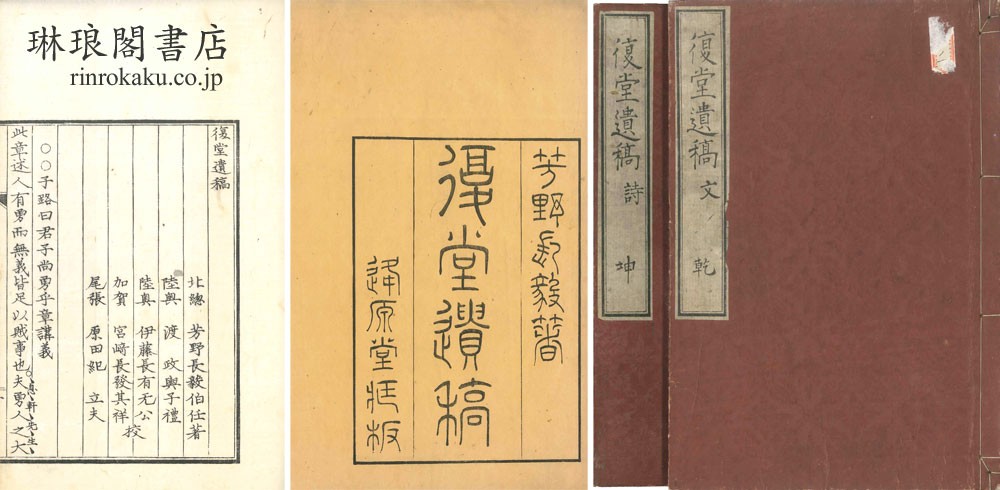 琳琅閣書店
rinrokaku.co.jp
復堂遺稿
北總 芳野長毅伯任著
陸奥 渡 政興子禮
陸奥 伊藤長有无公
加賀 宮﨑長發其祥 校
尾張 原田紀 立夫
○○子路曰君子尚勇乎章講義
此章述人有勇而無義皆足以賊事也夫勇人之大
息軒先生
芳野長毅著
復堂遺稿
逢原堂莊板
復堂遺稿 詩 坤
復堂遺稿 文 乾